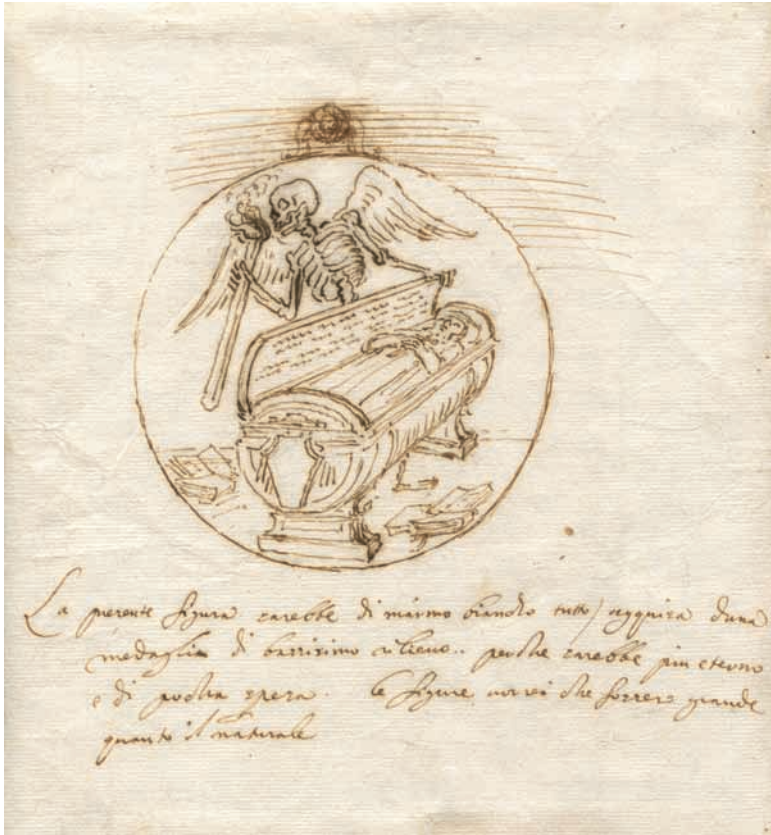 La presente figura sarebbe di marmo biancho tutto, agguisa duna
medaglia di bassissimo rilievo.. perche sarebbe piu eterno
e di pocha spesa. le figure vorrei che fossero grande
quanto il naturale